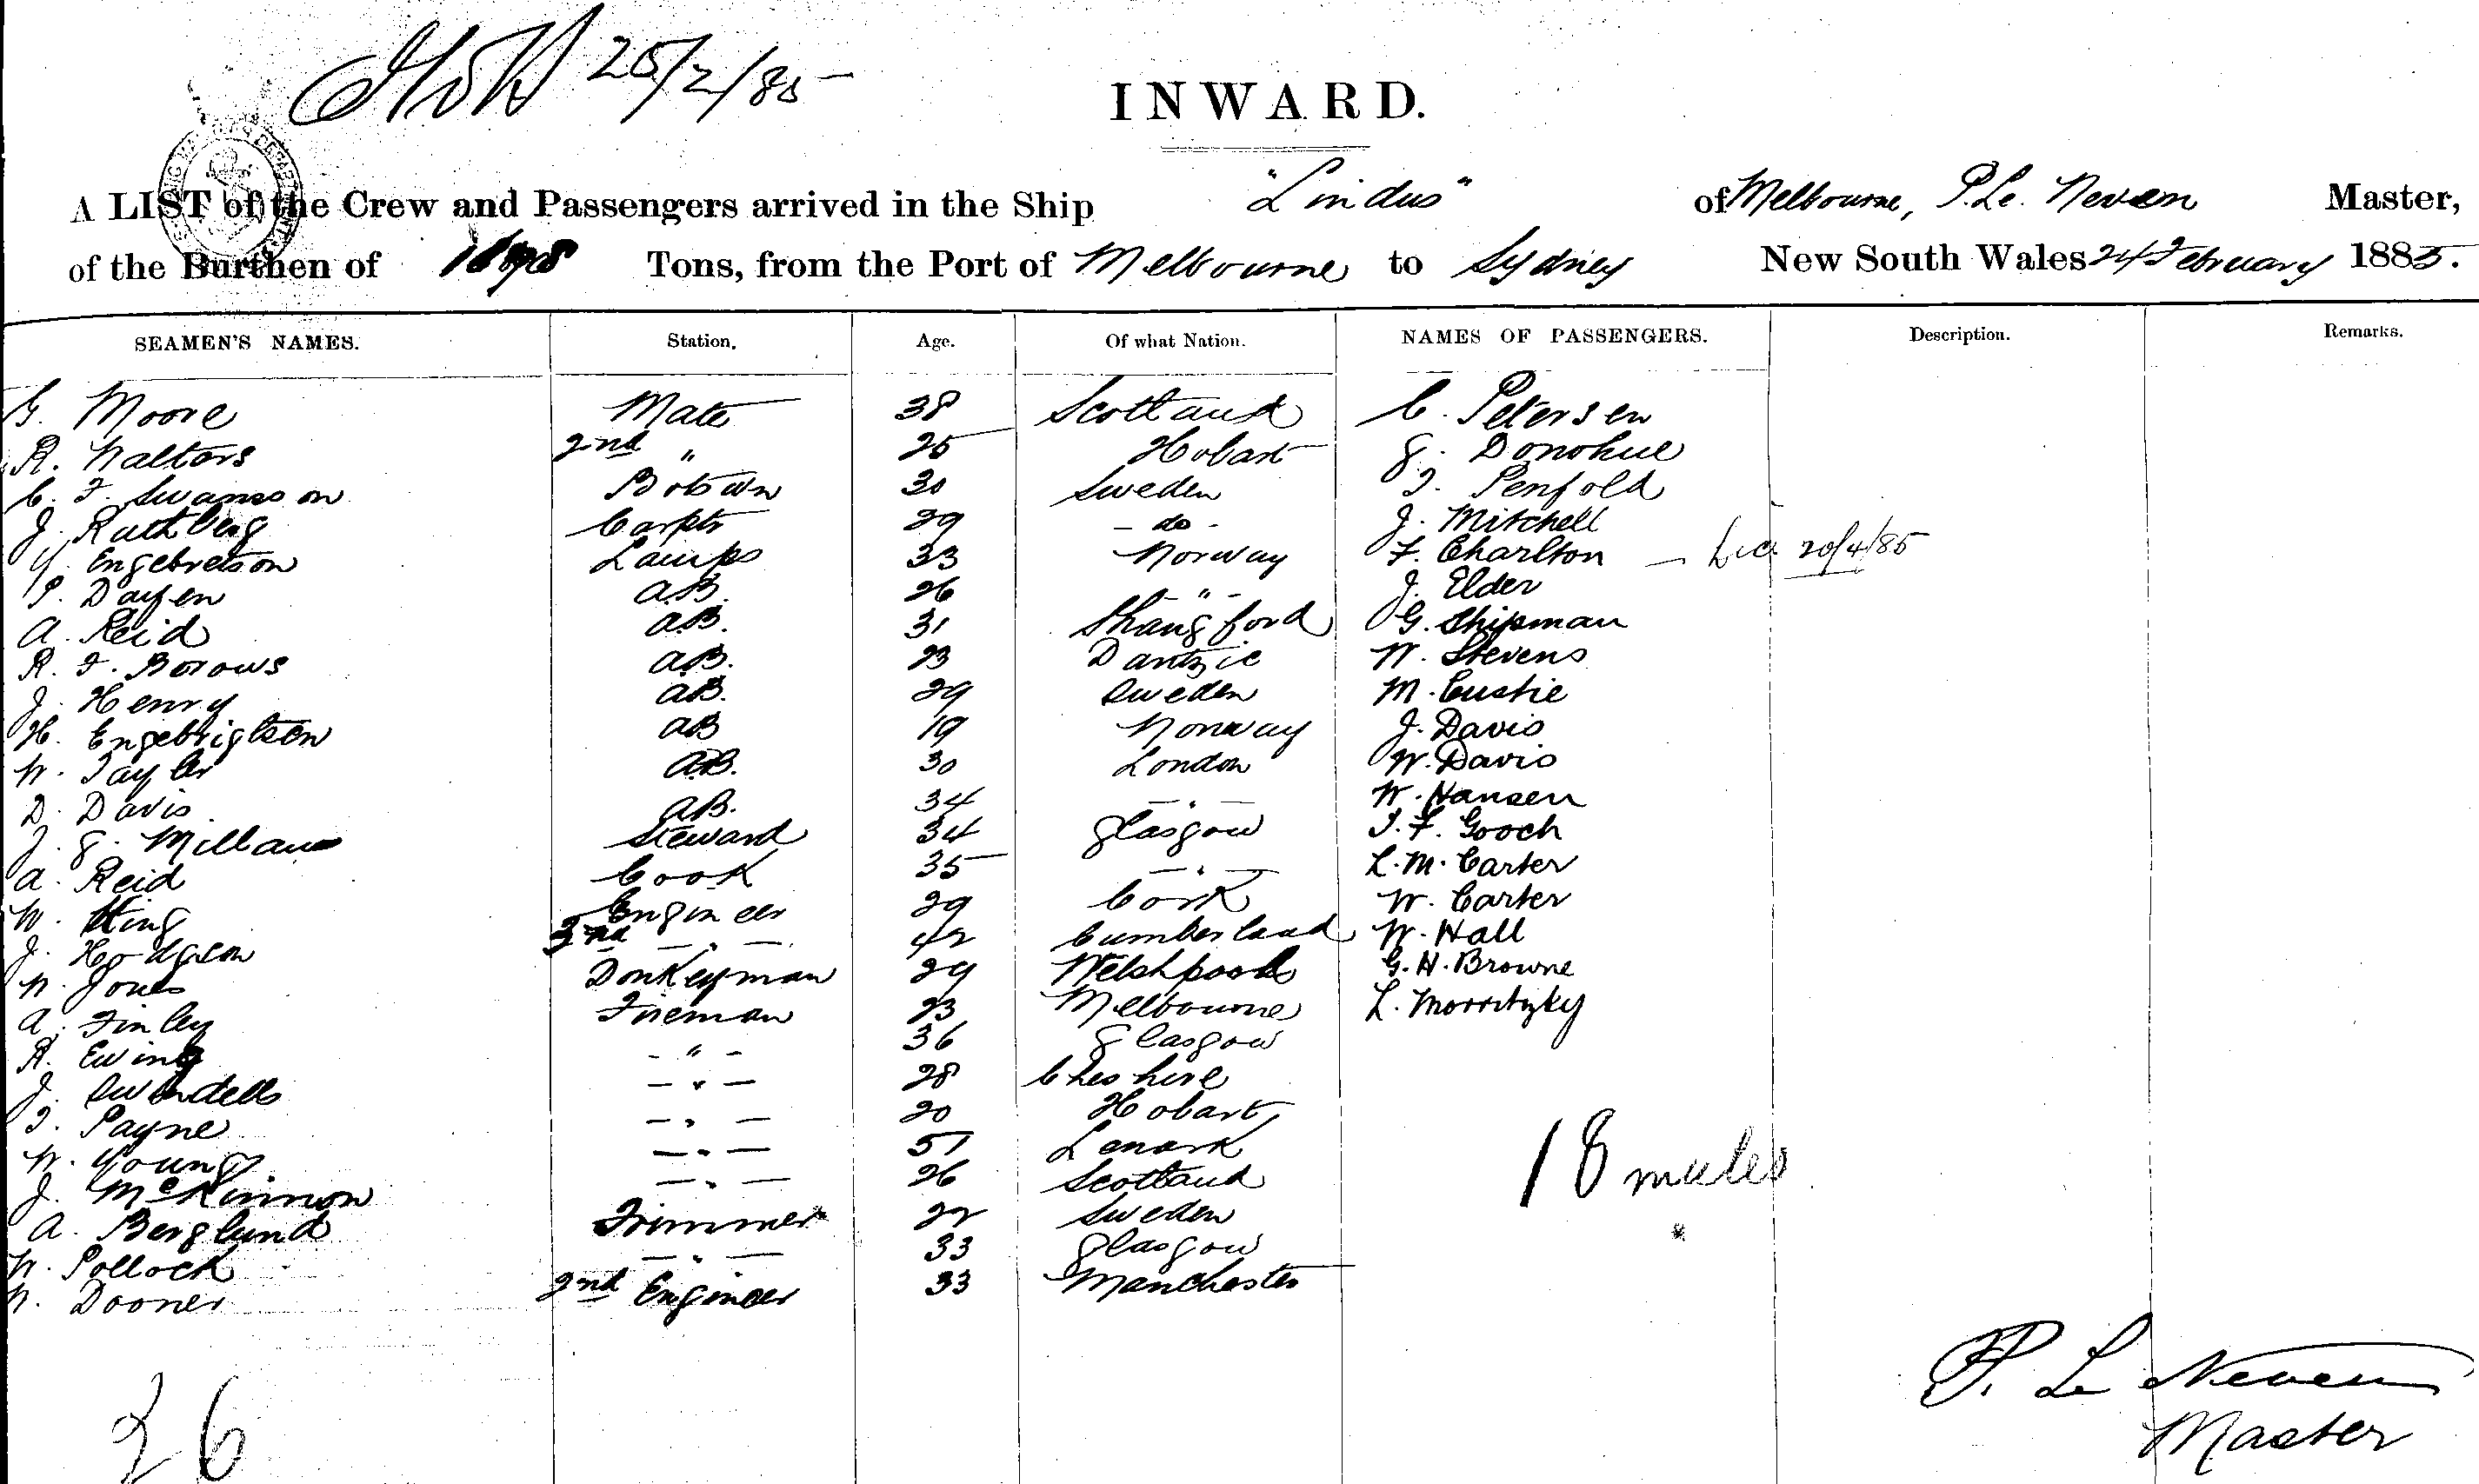 25/2/85
INWARD.
A LIST of the Crew and Passengers arrived in the Ship "Lindus" of Melbourne, P. Le. Neven Master,
of the Burthen of Tons, from the Port of Melbourne to Sydney New South Wales 24 February 1885.
SEAMEN'S NAMES. Station. Age. Of what Nation. NAMES OF PASSENGERS. Description. Remarks.
G. Moore Mate 38 Scotland C. Petersen
R. Walters 2nd " 25 Hobart J. Donohue
C. F. Swansson Botswn 30 Sweden T. Penfold
J. Rathberg Carptr 29 - do - J. Mitchell
Y. Engebretson Lamps 33 Norway F. Charlton - 20/4/85
P. A.B. 26 - " - J. Elder
A. Reid A.B. 31 G. Shipman
R. F. Borows A.B. 23 Dantzic W. Stevens
J. Henry A.B. 29 Sweden M. Custie
H. Engebrigtsen AB 19 Norway J. Davis
W. Taylor A.B. 30 London W. Davis
D. Davis A.B. 34 — " — W. Hansen
J. G. Steward 34 Glasgow T. F. Gooch
A. Reid Cook 35 — " — L. M. Carter
W. King Engineer 29 Cork W. Carter
J. Hodgson 3rd — " — 42 Cumberland W. Hall
W. Jones Donkeyman 29 Welshpool G. H. Browne
A. Finley Fireman 23 Melbourne L. Morritzky
R. Ewing - " - 36 Glasgow
J. Swindells — " — 28 Cheshire
T. Payne — " — 20 Hobart
W. Young — " — 51 Lenark
J. McKinnon — " — 26 Scotland
A. Berglund Trimmer 22 Sweden
W. Pollock — " — 33 Glasgow
W. Dooner 2nd Engineer 33 Manchester
18 males
26
P. Le Neven
Master